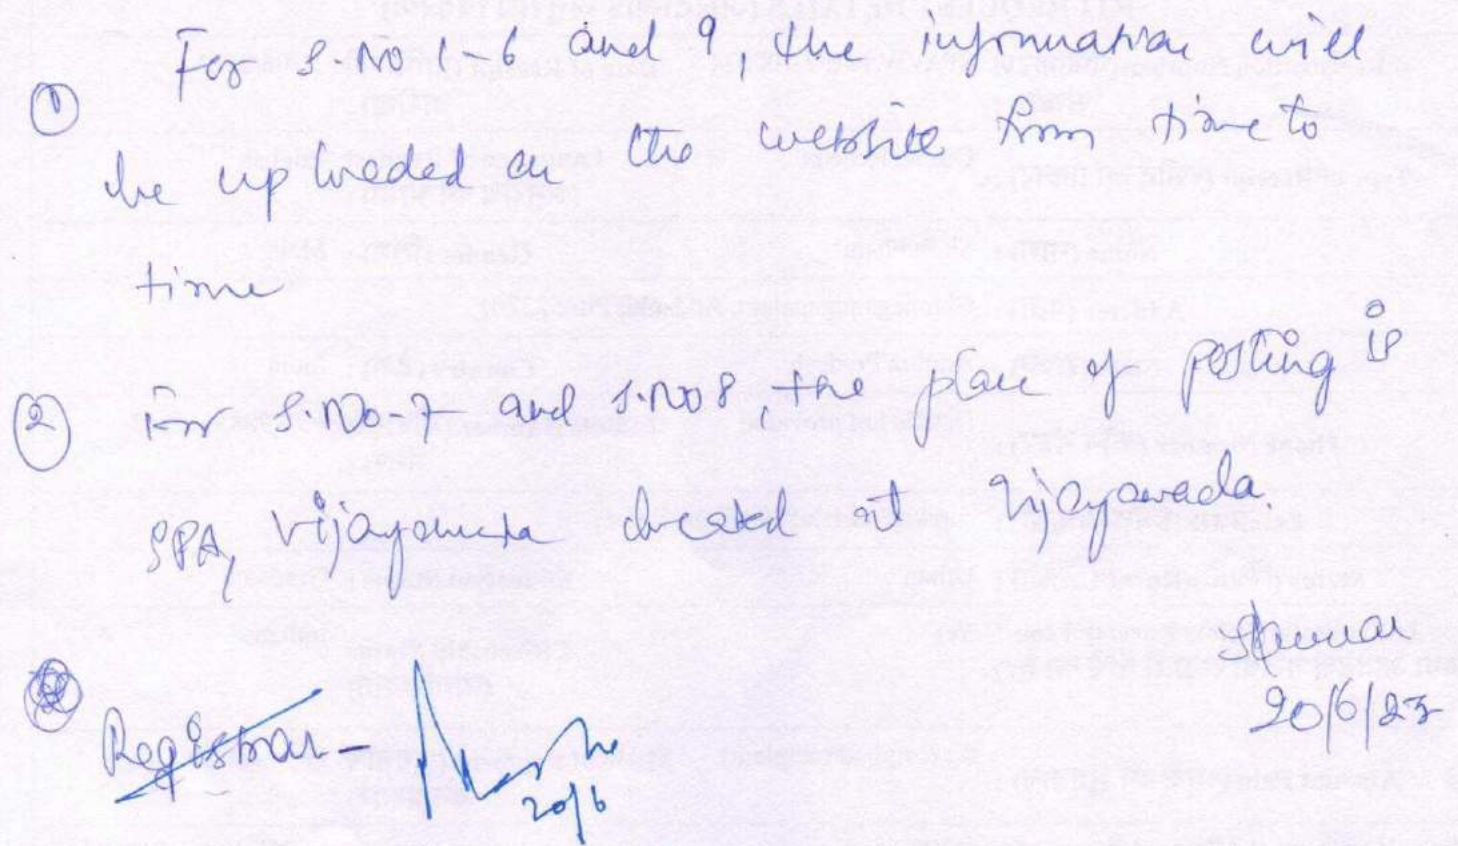 ① For S No 1-6 and 9, the information will
be uploaded on the website from time to
time
② For S.No-7 and S.No 8, the place of posting is
SPA, Vijayawada located at Vijayawada.
20/6/23
Registrar -
20/6